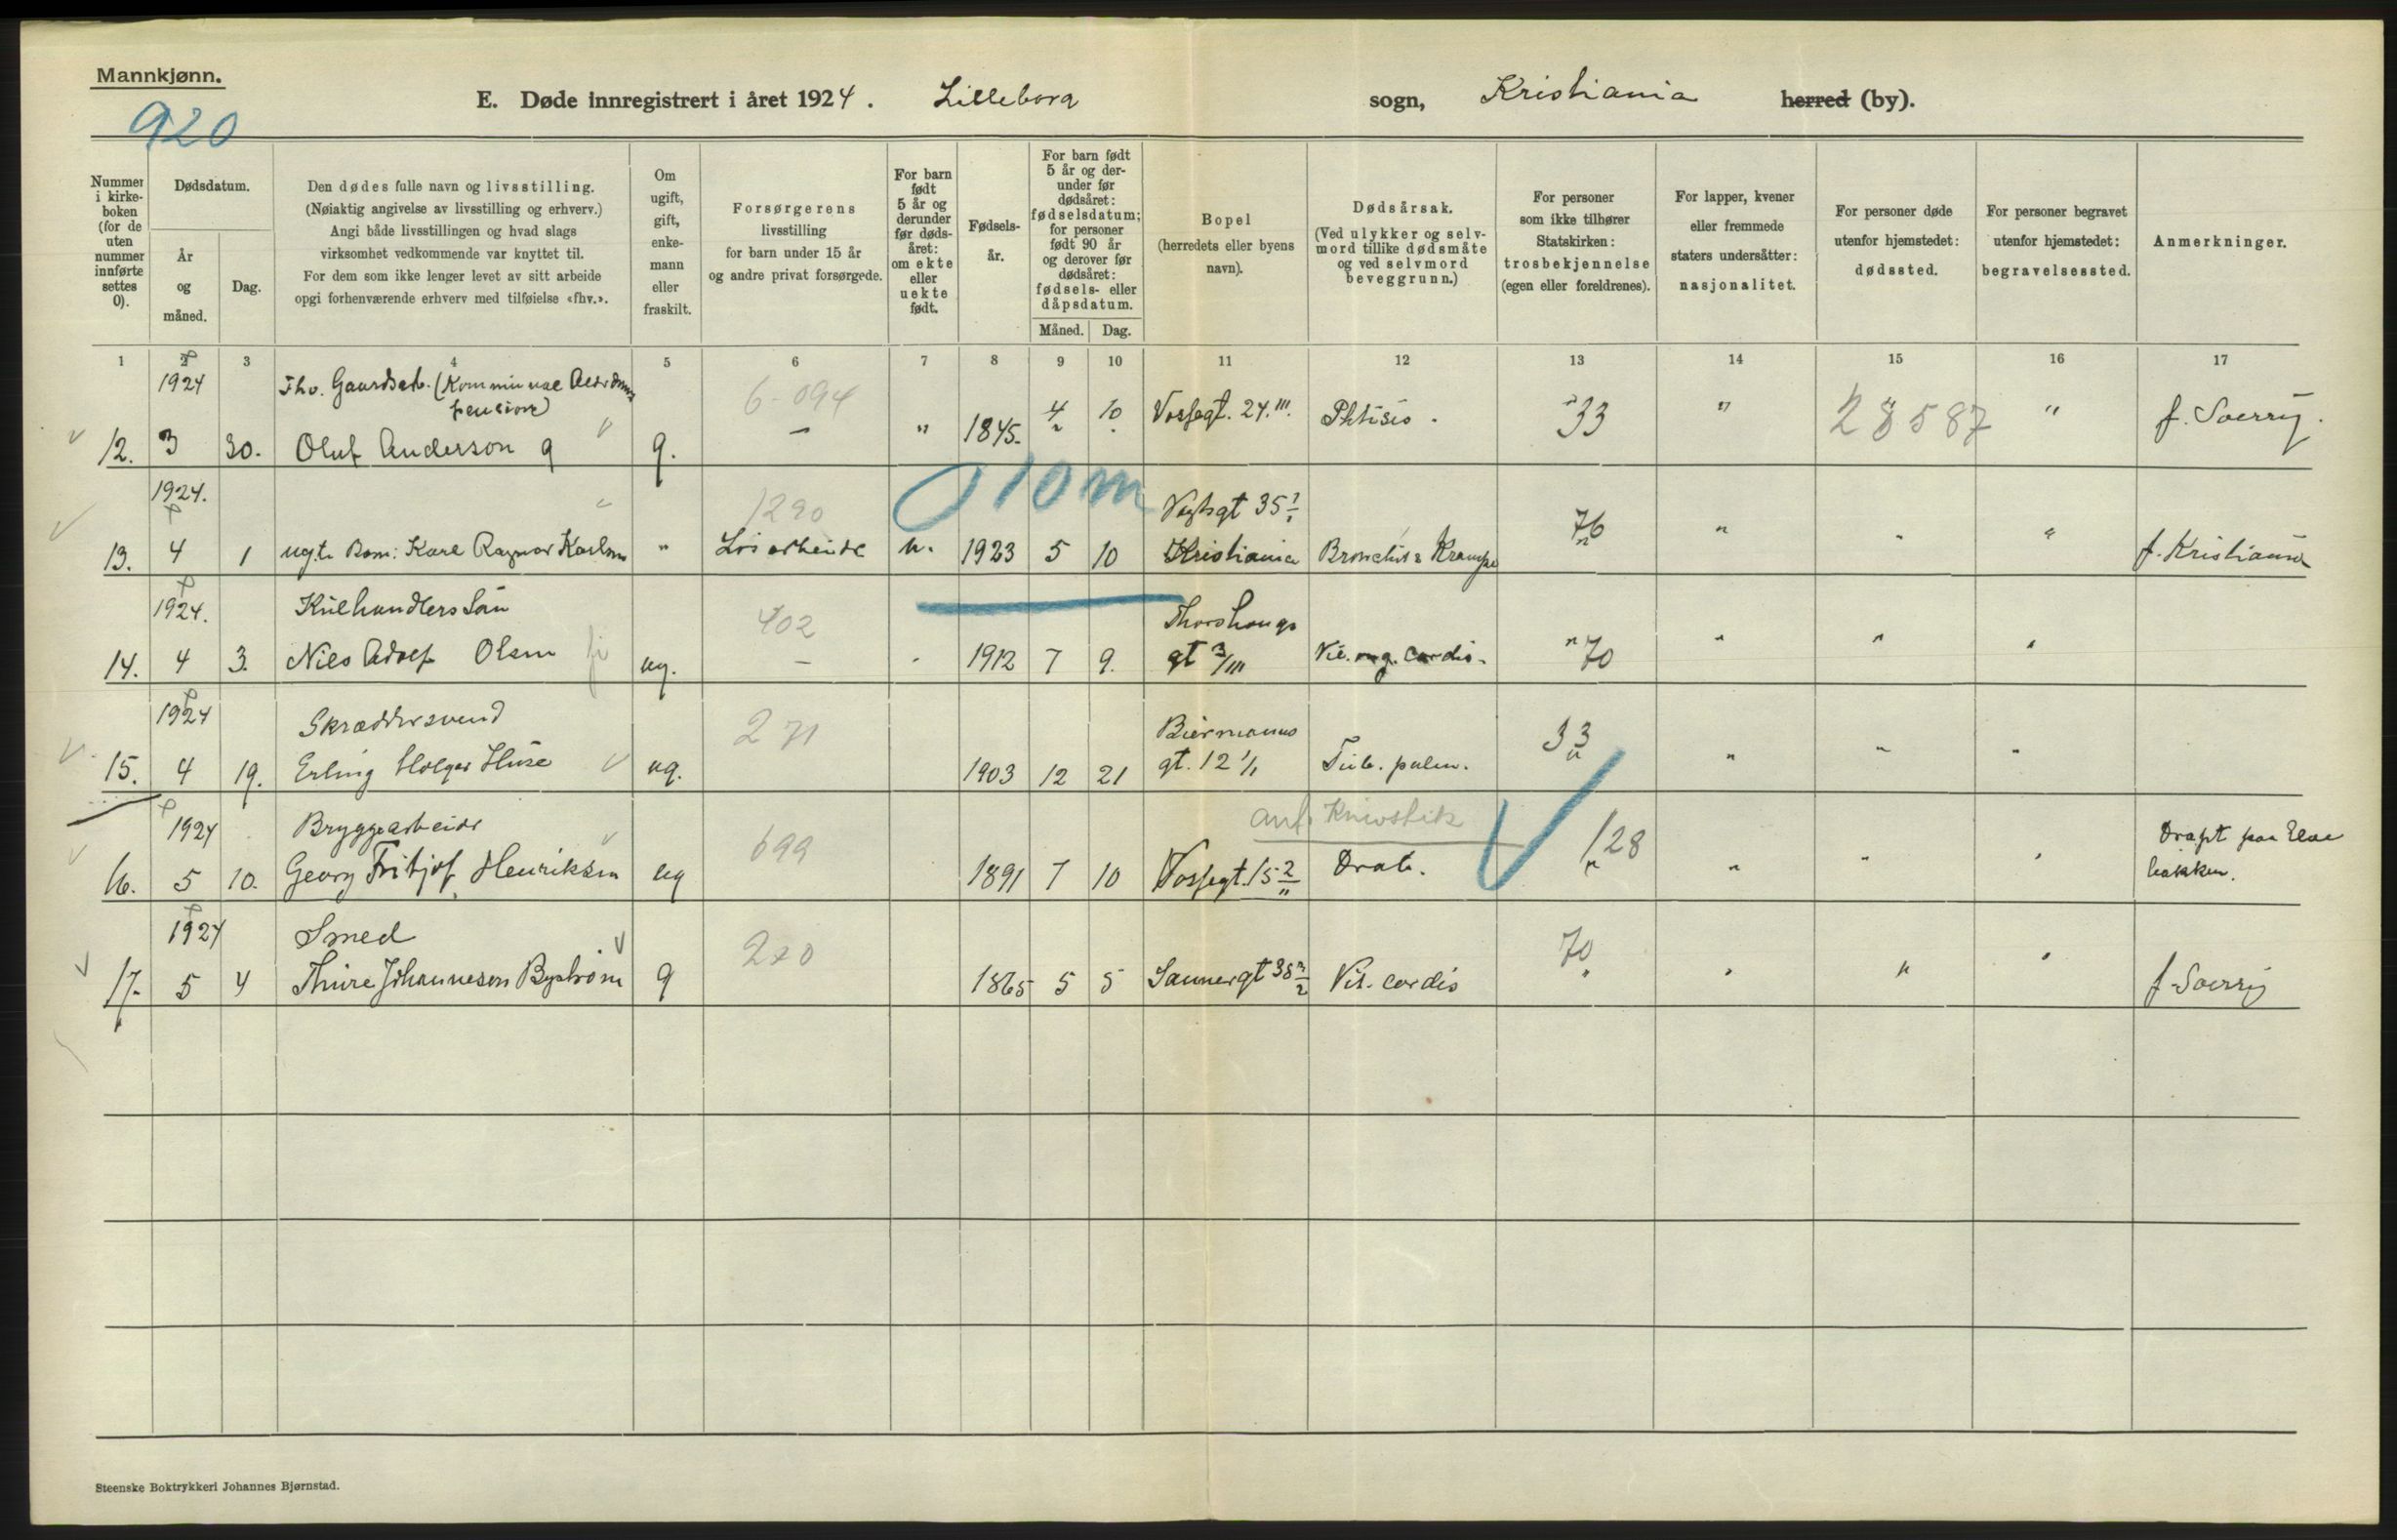 Mannkjønn.
920
E. Døde innregistrert i året 1924. Lilleborg sogn, Kristiania herred (by).
Nummer i kirke-boken (for de uten nummer innførte settes 0).
Dødsdatum.
År og måned.
Dag.
Den dødes fulle navn og livsstilling.
(Nøiaktig angivelse av livsstilling og erhverv.)
Angi både livsstillingen og hvad slags
virksomhet vedkommende var knyttet til.
For dem som ikke lenger levet av sitt arbeide
opgi forhenværende erhverv med tilføielse «fhv.».
Om ugift, gift, enke-mann eller fraskilt.
Forsørgerens
livsstilling
for barn under 15 år
og andre privat forsørgede.
For barn født 5 år og derunder før døds-året: om ekte eller uekte født.
Fødsels-år.
For barn født 5 år og der-under før dødsåret: fødselsdatum; for personer født 90 år og derover før dødsåret: fødsels- eller dåpsdatum.
Måned. Dag.
Bopel
(herredets eller byens
navn).
Dødsårsak.
(Ved ulykker og selv-
mord tillike dødsmåte
og ved selvmord
beveggrunn.)
For personer
som ikke tilhører
Statskirken:
trosbekjennelse
(egen eller foreldrenes).
For lapper, kvener
eller fremmede
staters undersåtter:
nasjonalitet.
For personer døde
utenfor hjemstedet:
dødssted.
For personer begravet
utenfor hjemstedet:
begravelsessted.
Anmerkninger.
1 2 3 4 5 6 7 8 9 10 11 12 13 14 15 16 17
1924 Fhv. Gaardsarb. (Kommunal Alderdoms
pension) 6-094
12. 3 30. Oluf Anderson g g. — " 1845. 4 10 Vossegt. 24.III. Phtisis. 33 " 28587 " f. Sverrig.
010 m
1924. 1290 Vogtsgt 35
13. 4 1 ugte Barn: Karl Ragnar Karlsen " Løsarbeide u. 1923 5 10 Kristiania Bronchit & Krampe 76 " " " f. Kristiania
1924. Kulhandlers Søn 402 Thorshaugs
14. 4 3. Nils Adolf Olsen ug. — 1912 7 9. gt 3/III Vit. org. cordis. 70 " " "
1924 Skræddersvend 271 Biermanns
15. 4 19. Erling Holger Huse ug. 1903 12 21 gt. 12 1/1 Tub. pulm. 33 " " "
1924 Bryggearbeide 699 Knivstik
16. 5 10. Georg Fritjof Henriksen ug 1891 7 10 Vossegt. 15 2/" Drab. 128 " " " Dræpt paa Elve
bakken.
1924 Smed 220
17. 5 4 Thure Johanneson Byström g 1865 5 5 Sannergt 38 Vit. cordis 70 " " " f. Sverrig
Steenske Boktrykkeri Johannes Bjørnstad.